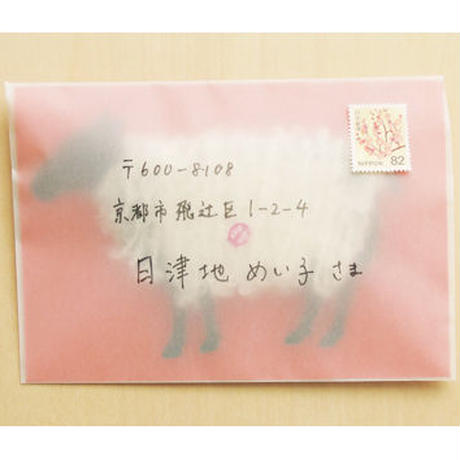 〒600-8108
京都市飛辻区1-2-4
日津地 めい子 さま
NIPPON 82